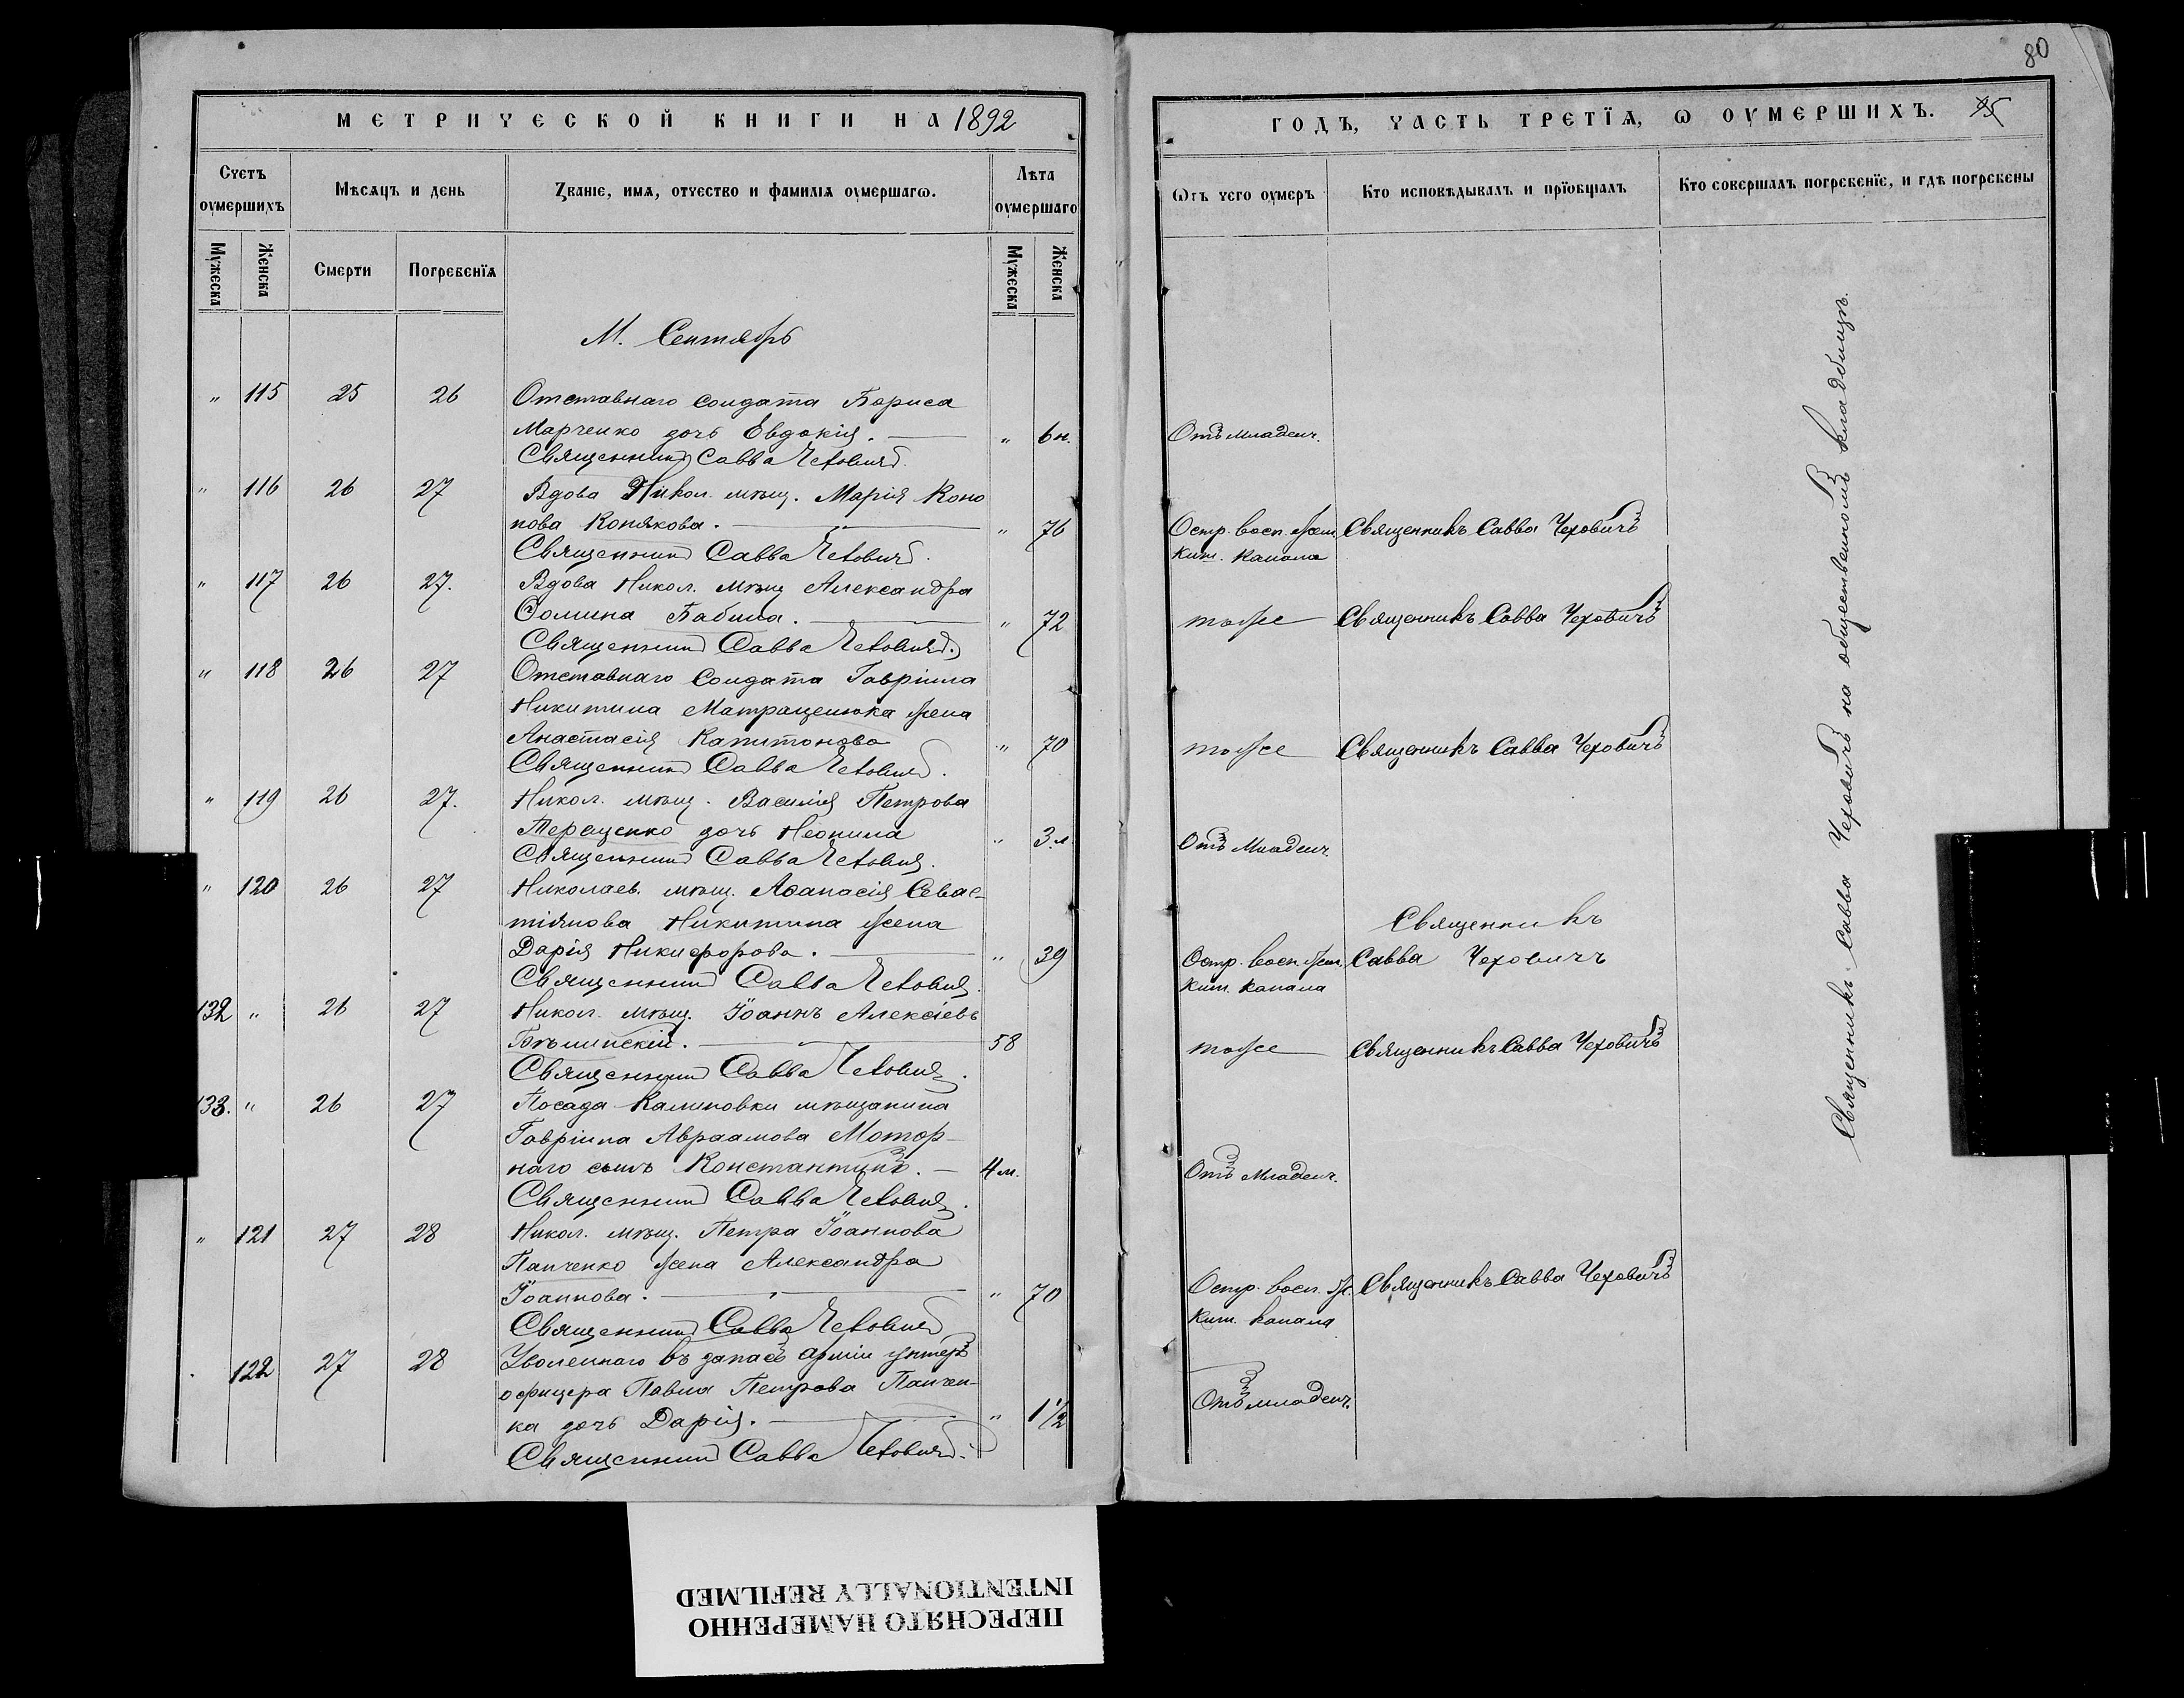 80
МЕТРИЧЕСКОЙ КНИГИ НА 1892
ГОДЪ, ЧАСТЬ ТРЕТЇѦ, Ѡ ОУМЕРШИХЪ.
Счетъ оумершихъ
Мѣсѧцъ и день
Званіе, имѧ, отчество и фамиліѧ оумершагѡ.
Лѣта оумершаго
Ѿ чего оумеръ
Кто исповѣдывалъ и прїобщалъ
Кто совершалъ погребенїе, и гдѣ погребены
Мужеска
Женска
Смерти
Погребенїѧ
Мужеска
Женска
М. Сентябрь
" 115 25 26 Отставнаго солдата Бориса
Марченко дочь Евдокія. " 6 н. Отъ младенч.
Священникъ Савва Чеховичъ.
" 116 26 27 Вдова Никол. мѣщ. Марія Коно
нова Конякова. " 76 Остр. восп. жел. Священникъ Савва Чеховичъ
Священникъ Савва Чеховичъ. киш. канала
" 117 26 27. Вдова Никол. мѣщ Александра
Ѳомина Бабина. " 72 тоже Священникъ Савва Чеховичъ
Священникъ Савва Чеховичъ.
" 118 26 27 Отставнаго солдата Гавріила
Никитина Матращенюка жена
Анастасія Капитонова " 70 тоже Священникъ Савва Чеховичъ
Священникъ Савва Чеховичъ.
" 119 26 27. Никол. мѣщ. Василія Петрова
Терещенко дочь Неонила " 3. Отъ Младенч.
Священникъ Савва Чеховичъ.
" 120 26 27 Николаев. мѣщ. Аѳанасія Севас-
тіянова Никитина жена Священникъ
Дарія Никифорова. " 39 Остр. восп. жел. Савва Чеховичъ
Священникъ Савва Чеховичъ. киш. канала
132 " 26 27 Никол. мѣщ. Іоаннъ Алексіевъ
Бѣлинскій. 58 тоже Священникъ Савва Чеховичъ
Священникъ Савва Чеховичъ.
133. " 26 27 Посада Калиновки мѣщанина
Гавріила Авраамова Мотор-
наго сынъ Константинъ. 4 м. Отъ Младенч.
Священникъ Савва Чеховичъ.
" 121 27 28 Никол. мѣщ. Петра Іоаннова
Панченко жена Александра
Іоаннова. " 70 Остр. восп. ж. Священникъ Савва Чеховичъ
Священникъ Савва Чеховичъ киш. канала
122 27 28 Уволеннаго въ запасъ арміи унтеръ
офицера Павла Петрова Панчен-
ка дочь Дарія. " 1 1/2 Отъ младенч.
Священникъ Савва Чеховичъ.
Священникъ Савва Чеховичъ на общественномъ кладбищѣ.
ПЕРЕСНЯТО НАМЕРЕННО
INTENTIONALLY REFILMED